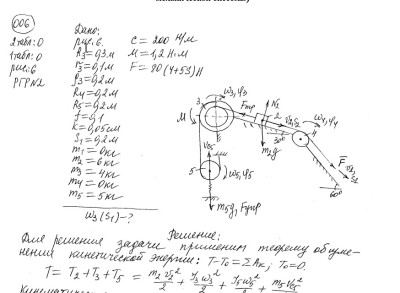 006
2 табл: 0
1 табл: 0
рис: 6
РГР N2
Дано:
рис. 6.
R₃ = 0,3 м
r₃ = 0,1 м
ρ₃ = 0,2 м
R₄ = 0,2 м
R₅ = 0,2 м
f = 0,1
k = 0,05 м
S₁ = 0,2 м
m₁ = 0 кг
m₂ = 6 кг
m₃ = 4 кг
m₄ = 0 кг
m₅ = 5 кг
ω₃(S₁) - ?
c = 200 Н/м
M = 1,2 Н·м
F = 80(4+5S) Н
ω₃, φ₃
3
Fтр
N₂
2
ω₄, φ₄
4
M
m₂g
30°
F
60°
5
ω₅, φ₅
m₅g, Fупр
Решение:
Для решения задачи применим теорему об изме-
нении кинетической энергии: T - T₀ = ΣAₖ; T₀ = 0.
T = T₂ + T₃ + T₅ = m₂v₂²/2 + J₃ω₃²/2 + J₅ω₅²/2 + m₅v₅²/2